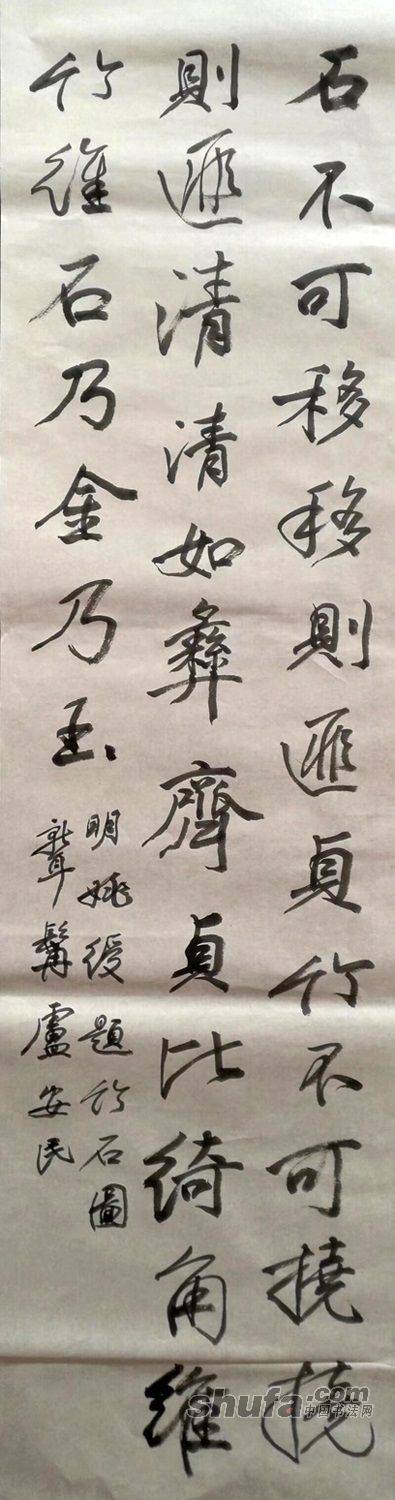 石不可移移則匪貞竹不可撓撓
則匪清清如彝齊貞比綺角維
竹維石乃金乃玉
明姚綬題竹石圖
聾髯盧安民
shufa.com
中国书法网